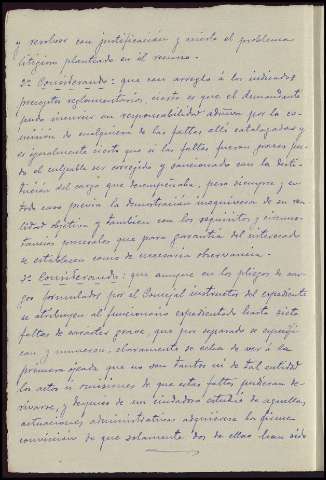 y resolver con justificación y acierto el problema
litigioso planteado en el recurso.
2º Considerando: que con arreglo á los indicados
preceptos reglamentarios, cierto es que el demandante
pudo incurrir en responsabilidad administrativa por la co-
misión de cualquiera de las faltas allí catalogadas y
es igualmente cierto que si las faltas fueran graves pu-
do el culpable ser corregido y sancionado con la desti-
tución del cargo que desempeñaba, pero siempre y en
todo caso previa la demostración inequívoca de su rea-
lidad objetiva y también con los requisitos y circuns-
tancias procesales que para garantía del interesado
se establecen como de necesaria observancia.
3º Considerando: que aunque en los pliegos de car-
gos formulados por el Concejal instructor del expediente
se atribuyen al funcionario expedientado hasta siete
faltas de carácter grave, que por separado se especifi-
can y numeran, claramente se echa de ver á la
primera ojeada que no son tantos ni de tal entidad
los actos ú omisiones de que estas faltas pudieran de-
rivarse, y después de un cuidadoso estudio de aquellas
actuaciones administrativas adquiérese la firme
convicción de que solamente dos de ellas han sido